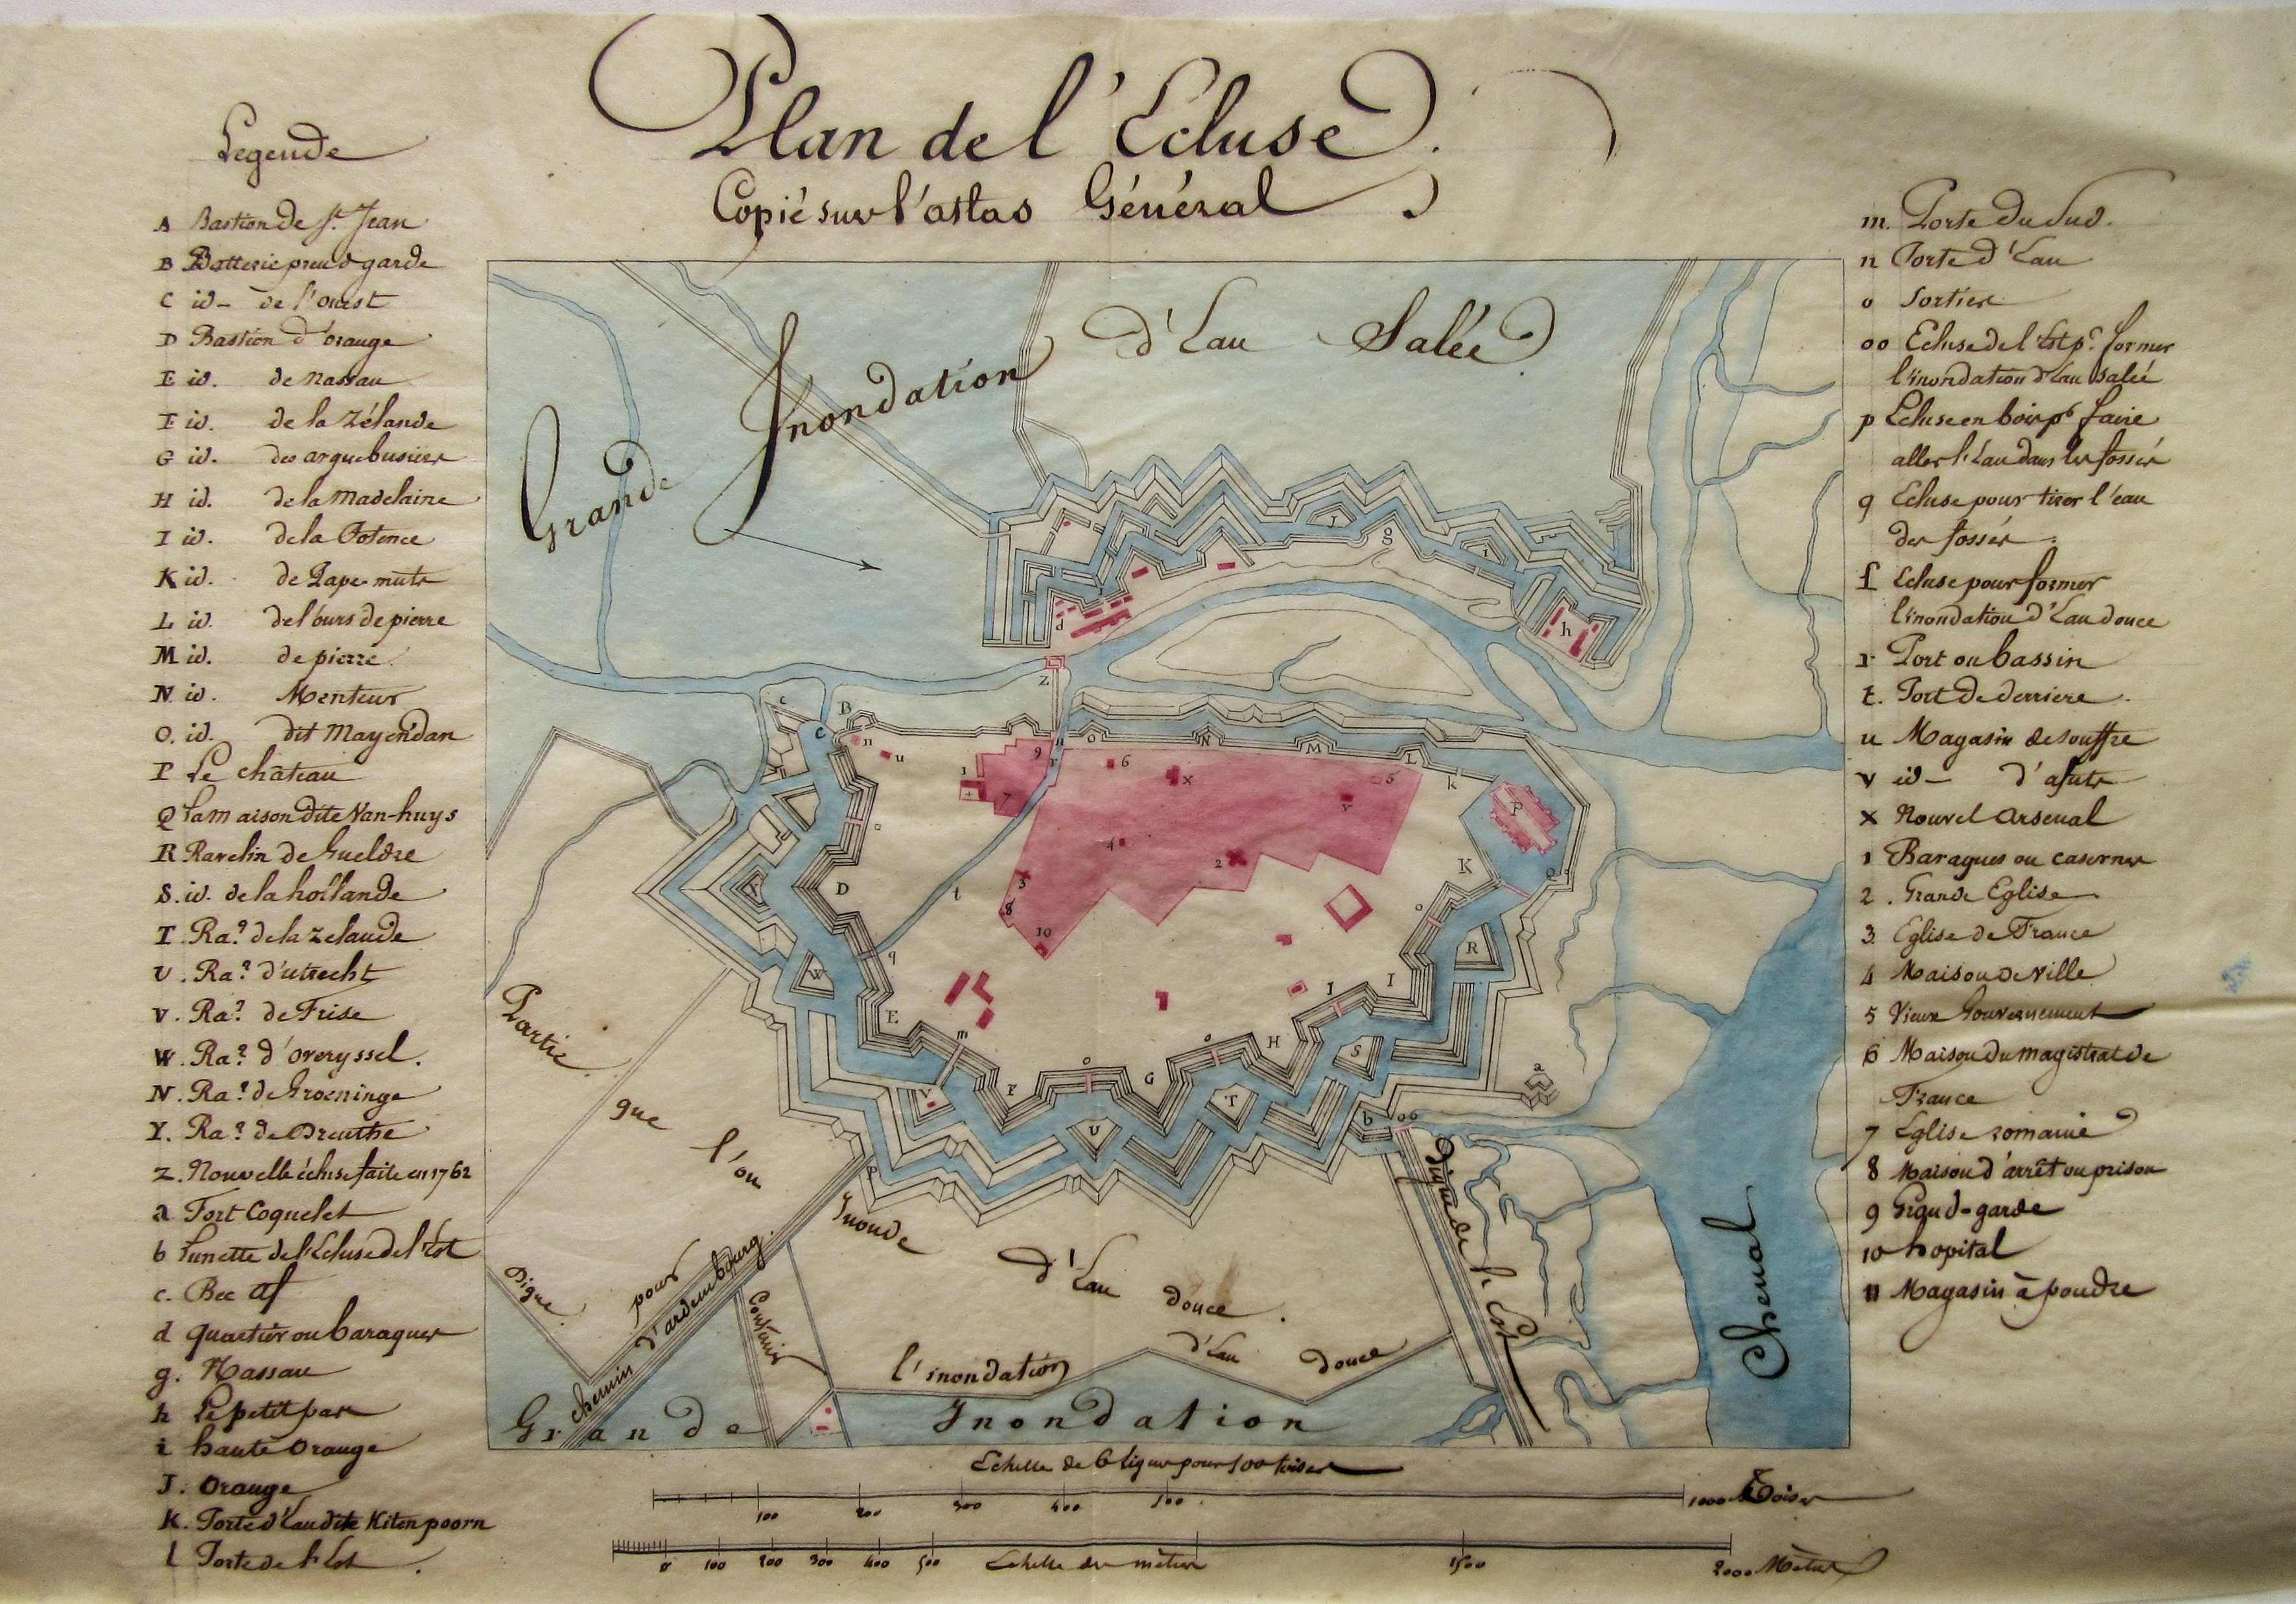 Plan de l'Ecluse.
Copié sur l'atlas Général
Legende
A Bastion de St. Jean
B Batterie garde
C id- de l'ouest
D Bastion d'orange
E id. de Nassau
F id. de la Zélande
G id. des arquebusiers
H id. de la Madelaine
I id. de la Potence
K id. de Pape-muts
L id. de l'ours de pierre
M id. de pierre.
N id. Menteur
O. id. dit Mayendan
P Le château
Q la maison dite Nan-huys
R Ravelin de Gueldre
S. id. de la hollande
T Ra.n de la Zelande
U. Ra.n d'utrecht
V. Ra.n de Frise
W. Ra.n d'overyssel.
N. Ra.n de Groeninge
Y. Ra.n de Drenthe
Z. Nouvelle écluse faite en 1762
a Fort Coquelet
b Lunette de l'Ecluse de l'Est
c. Bec af
d quartier ou baraques
g. Nassau
h Le petit pas
i haute orange
J. Orange
K. Porte d'Eau dite Kiten poorn
l Porte de l'Est.
m. Porte du Sud.
n Porte d'Eau
o Sortier
oo Ecluse de l'Est pr. former
l'inondation d'Eau Salée
p Ecluse en bois pr faire
aller l'Eau dans les fossés
q Ecluse pour tirer l'eau
des fossés.
f Ecluse pour former
l'inondation d'Eau douce
r Port ou bassin
t. Port de derriere.
u Magasin de souffre
v id- d'afuts
x Nouvel Arsenal
1 Baraques ou casernes
2. Grande Eglise
3. Eglise de France
4 Maison de Ville
5 Vieux Gouvernement
6 Maison du magistrat de
France
7 Eglise romaine
8 Maison d'arrêt ou prison
9 Grand-garde
10 hopital
11 Magasin à poudre
Grande Inondation d'Eau Salée
Partie que l'on Inonde d'Eau douce.
Digue pour Contenir l'inondation d'Eau douce
chemin d'ardembourg.
Grande Inondation
Digue de l'Est
Chenal
Echelle de 6 lignes pour 100 toises
100 200 300 400 500 1000 Toises
0 100 200 300 400 500 Echelle de mètres 1500 2000 Mètres